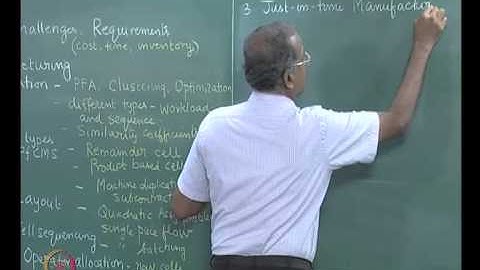 hallenges, Requirements
(cost, time, inventory)
cturing
ation - PFA, Clustering, Optimization
- different types - workload
and sequence
- Similarity coefficient
types - Remainder cell
of CMS
- Product based cell
- Machine duplicati
subcontract
ayout - Quadratic Assg
single piece flow
ell sequencing - " batching
Operator allocation - row cells
3 Just-in-time Manufactur